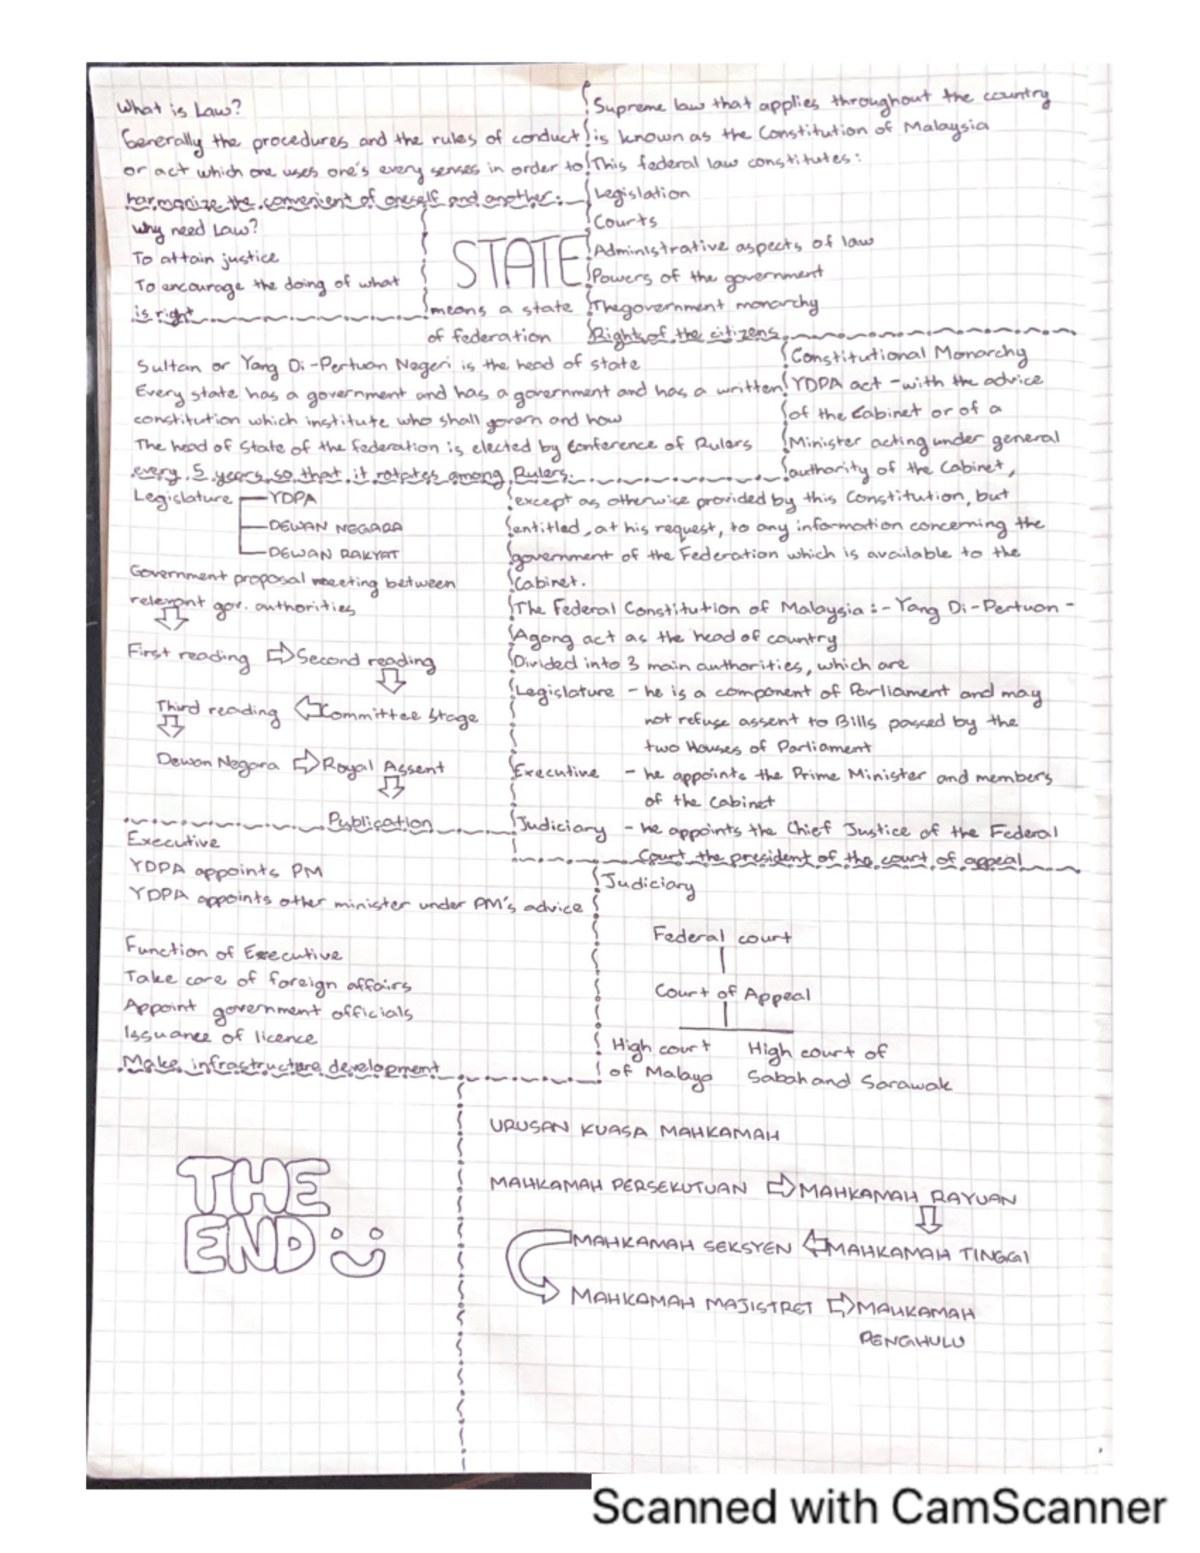 What is Law?
Generally the procedures and the rules of conduct
or act which one uses one's every senses in order to
harmonize the convenient of oneself and another.
Why need Law?
To attain justice
To encourage the doing of what
is right
STATE
means a state
of federation
Supreme law that applies throughout the country
is known as the Constitution of Malaysia
This federal law constitutes:
Legislation
Courts
Administrative aspects of law
Powers of the government
Thegovernment monarchy
Right of the citizens
Sultan or Yang Di-Pertuan Negeri is the head of state
Every state has a government and has a government and has a written
constitution which institute who shall govern and how
The head of State of the federation is elected by Conference of Rulers
every 5 years, so that it rotates among Rulers.
Constitutional Monarchy
YDPA act - with the advice
of the Cabinet or of a
Minister acting under general
authority of the Cabinet,
except as otherwise provided by this Constitution, but
entitled, at his request, to any information concerning the
government of the Federation which is available to the
Cabinet.
The Federal Constitution of Malaysia :- Yang Di-Pertuan-
Agong act as the head of country
Divided into 3 main authorities, which are
Legislature - he is a component of Parliament and may
not refuse assent to Bills passed by the
two Houses of Parliament
Executive - he appoints the Prime Minister and members
of the Cabinet
Judiciary - he appoints the Chief Justice of the Federal
Court the president of the court of appeal
Legislature YDPA
DEWAN NEGARA
DEWAN RAKYAT
Government proposal meeting between
relevant gov. authorities
First reading ⇨ Second reading
Third reading ⇦ Committee Stage
Dewan Negara ⇨ Royal Assent
Publication
Executive
YDPA appoints PM
YDPA appoints other minister under PM's advice
Function of Executive
Take care of foreign affairs
Appoint government officials
Issuance of licence
Make infrastructure development
Judiciary
Federal court
Court of Appeal
High court
of Malaya
High court of
Sabah and Sarawak
THE
END
URUSAN KUASA MAHKAMAH
MAHKAMAH PERSEKUTUAN ⇨ MAHKAMAH RAYUAN
MAHKAMAH SEKSYEN ⇦ MAHKAMAH TINGGI
MAHKAMAH MAJISTRET ⇨ MAHKAMAH
PENGHULU
Scanned with CamScanner